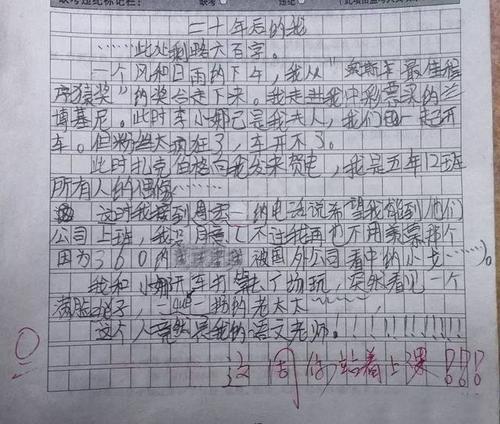 缺考违纪标记栏!
缺考 违纪
二十年后的我
……此处剩略六百字。
一个风和日雨的下午,我从“奥斯卡最佳程
序猿奖”的奖台走下来。我走进我中彩票买的兰
博基尼。此时李小娜已是我夫人,我们一起开
车。但粉丝太疯狂了,车开不了。
此时扎克伯格向我发来贺电,我是五年12班
所有人的偶像……
这时我接到周宏一的电话说希望我能到他们
公司上班,我没同意(不过我再也不用羡慕那个
因为360的 被国外公司看中的小龙……)。
我和小娜开车打算去广场玩,突然看见一个
满脸 子,一 一拐的老太太……,
这个人竟然是我的语文老师!!!!!!!!!!!!
0
这周你站着上课!!!